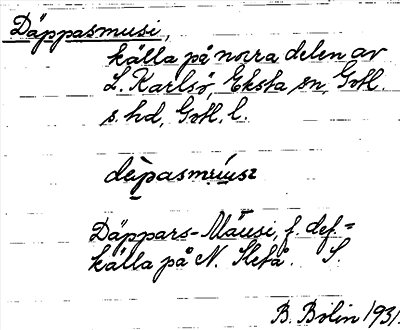 Däppasmusi,
källa på norra delen av
L. Karlsö, Eksta sn, Gotl.
s. hd, Gotl. l.
Däppars-Mäusi, f. def. =
källa på N. S.
B. Bolin 1931.